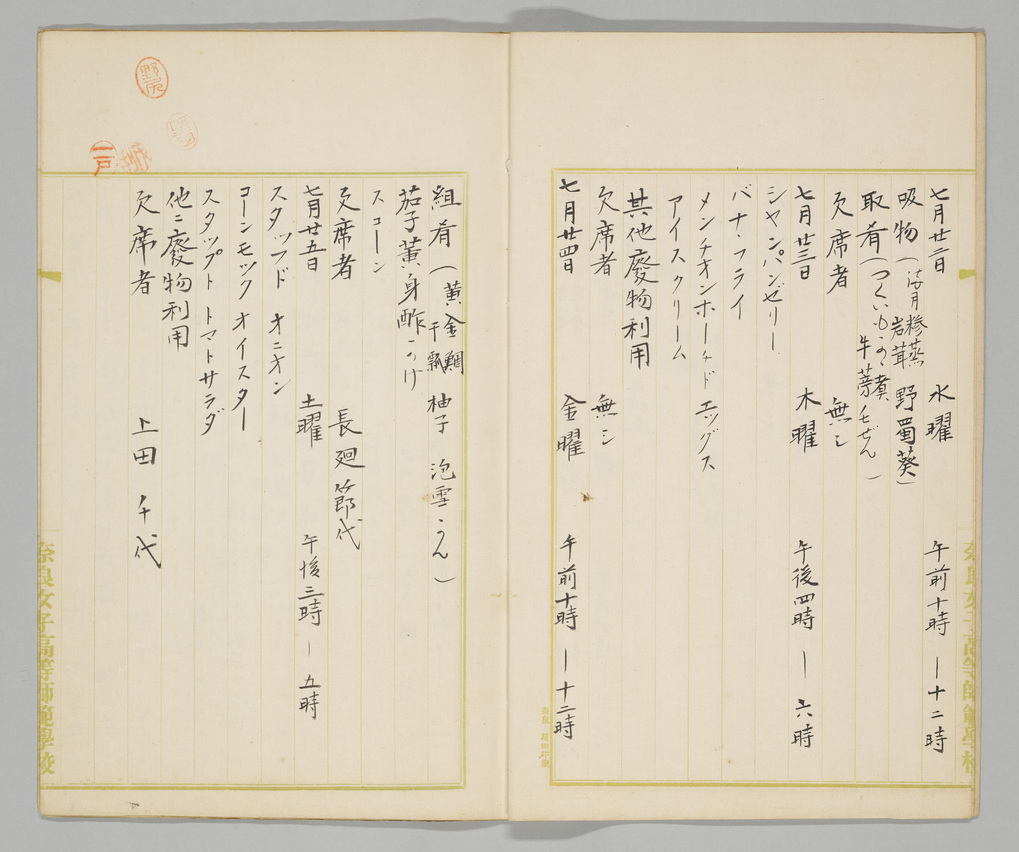 七月廿二日 水曜 午前十時 ー十二時
吸物（ 糝蒸 岩茸 野蜀葵）
取肴（つくいも 煮 牛蒡 ぜん）
欠席者 無シ
七月廿三日 木曜 午後四時 ー 六時
シヤンパンゼリー
バナヽフライ
メンチオンホーチド エッグス
アイスクリーム
其他廢物利用
欠席者 無シ
七月廿四日 金曜 午前十時 ー十二時
組肴（黄金鯛 干瓢 柚子 泡雪かん）
茄子黄身酢かけ
スコーン
欠席者 長廻節代
七月廿五日 土曜 午後三時 ー 五時
スタッフド オニオン
コーンモック オイスター
スタッフト トマトサラダ
他ニ廢物利用
欠席者 上田 千代
奈良女子高等師範學校
奈良女子高等師範學校
野尻
一戸